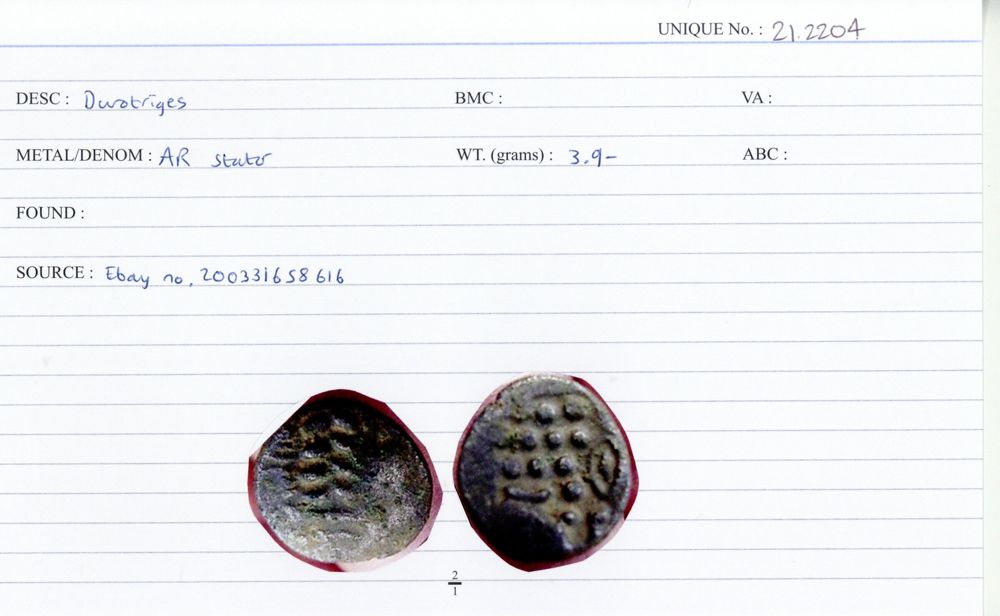 UNIQUE No. : 21.2204
DESC : Durotriges BMC : VA :
METAL/DENOM : AR stater WT. (grams) : 3.9- ABC :
FOUND :
SOURCE : Ebay no. 200331658616
2
1